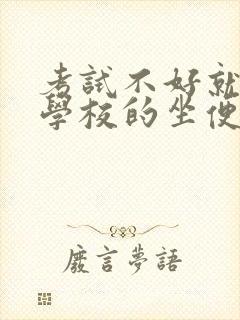 考試不好就
學校的坐便
廢言夢語